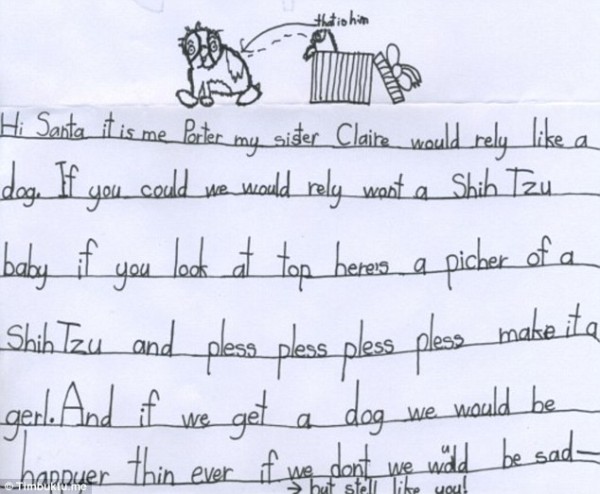 that is him
Hi Santa it is me Porter my sister Claire would rely like a
dog. If you could we would rely want a Shih Tzu
baby if you look at top here's a picher of a
Shih Tzu and pless pless pless pless make it a
gerl. And if we get a dog we would be
happyer thin ever if we dont we would be sad—
→ but stell like you!
© Timbuktu.me